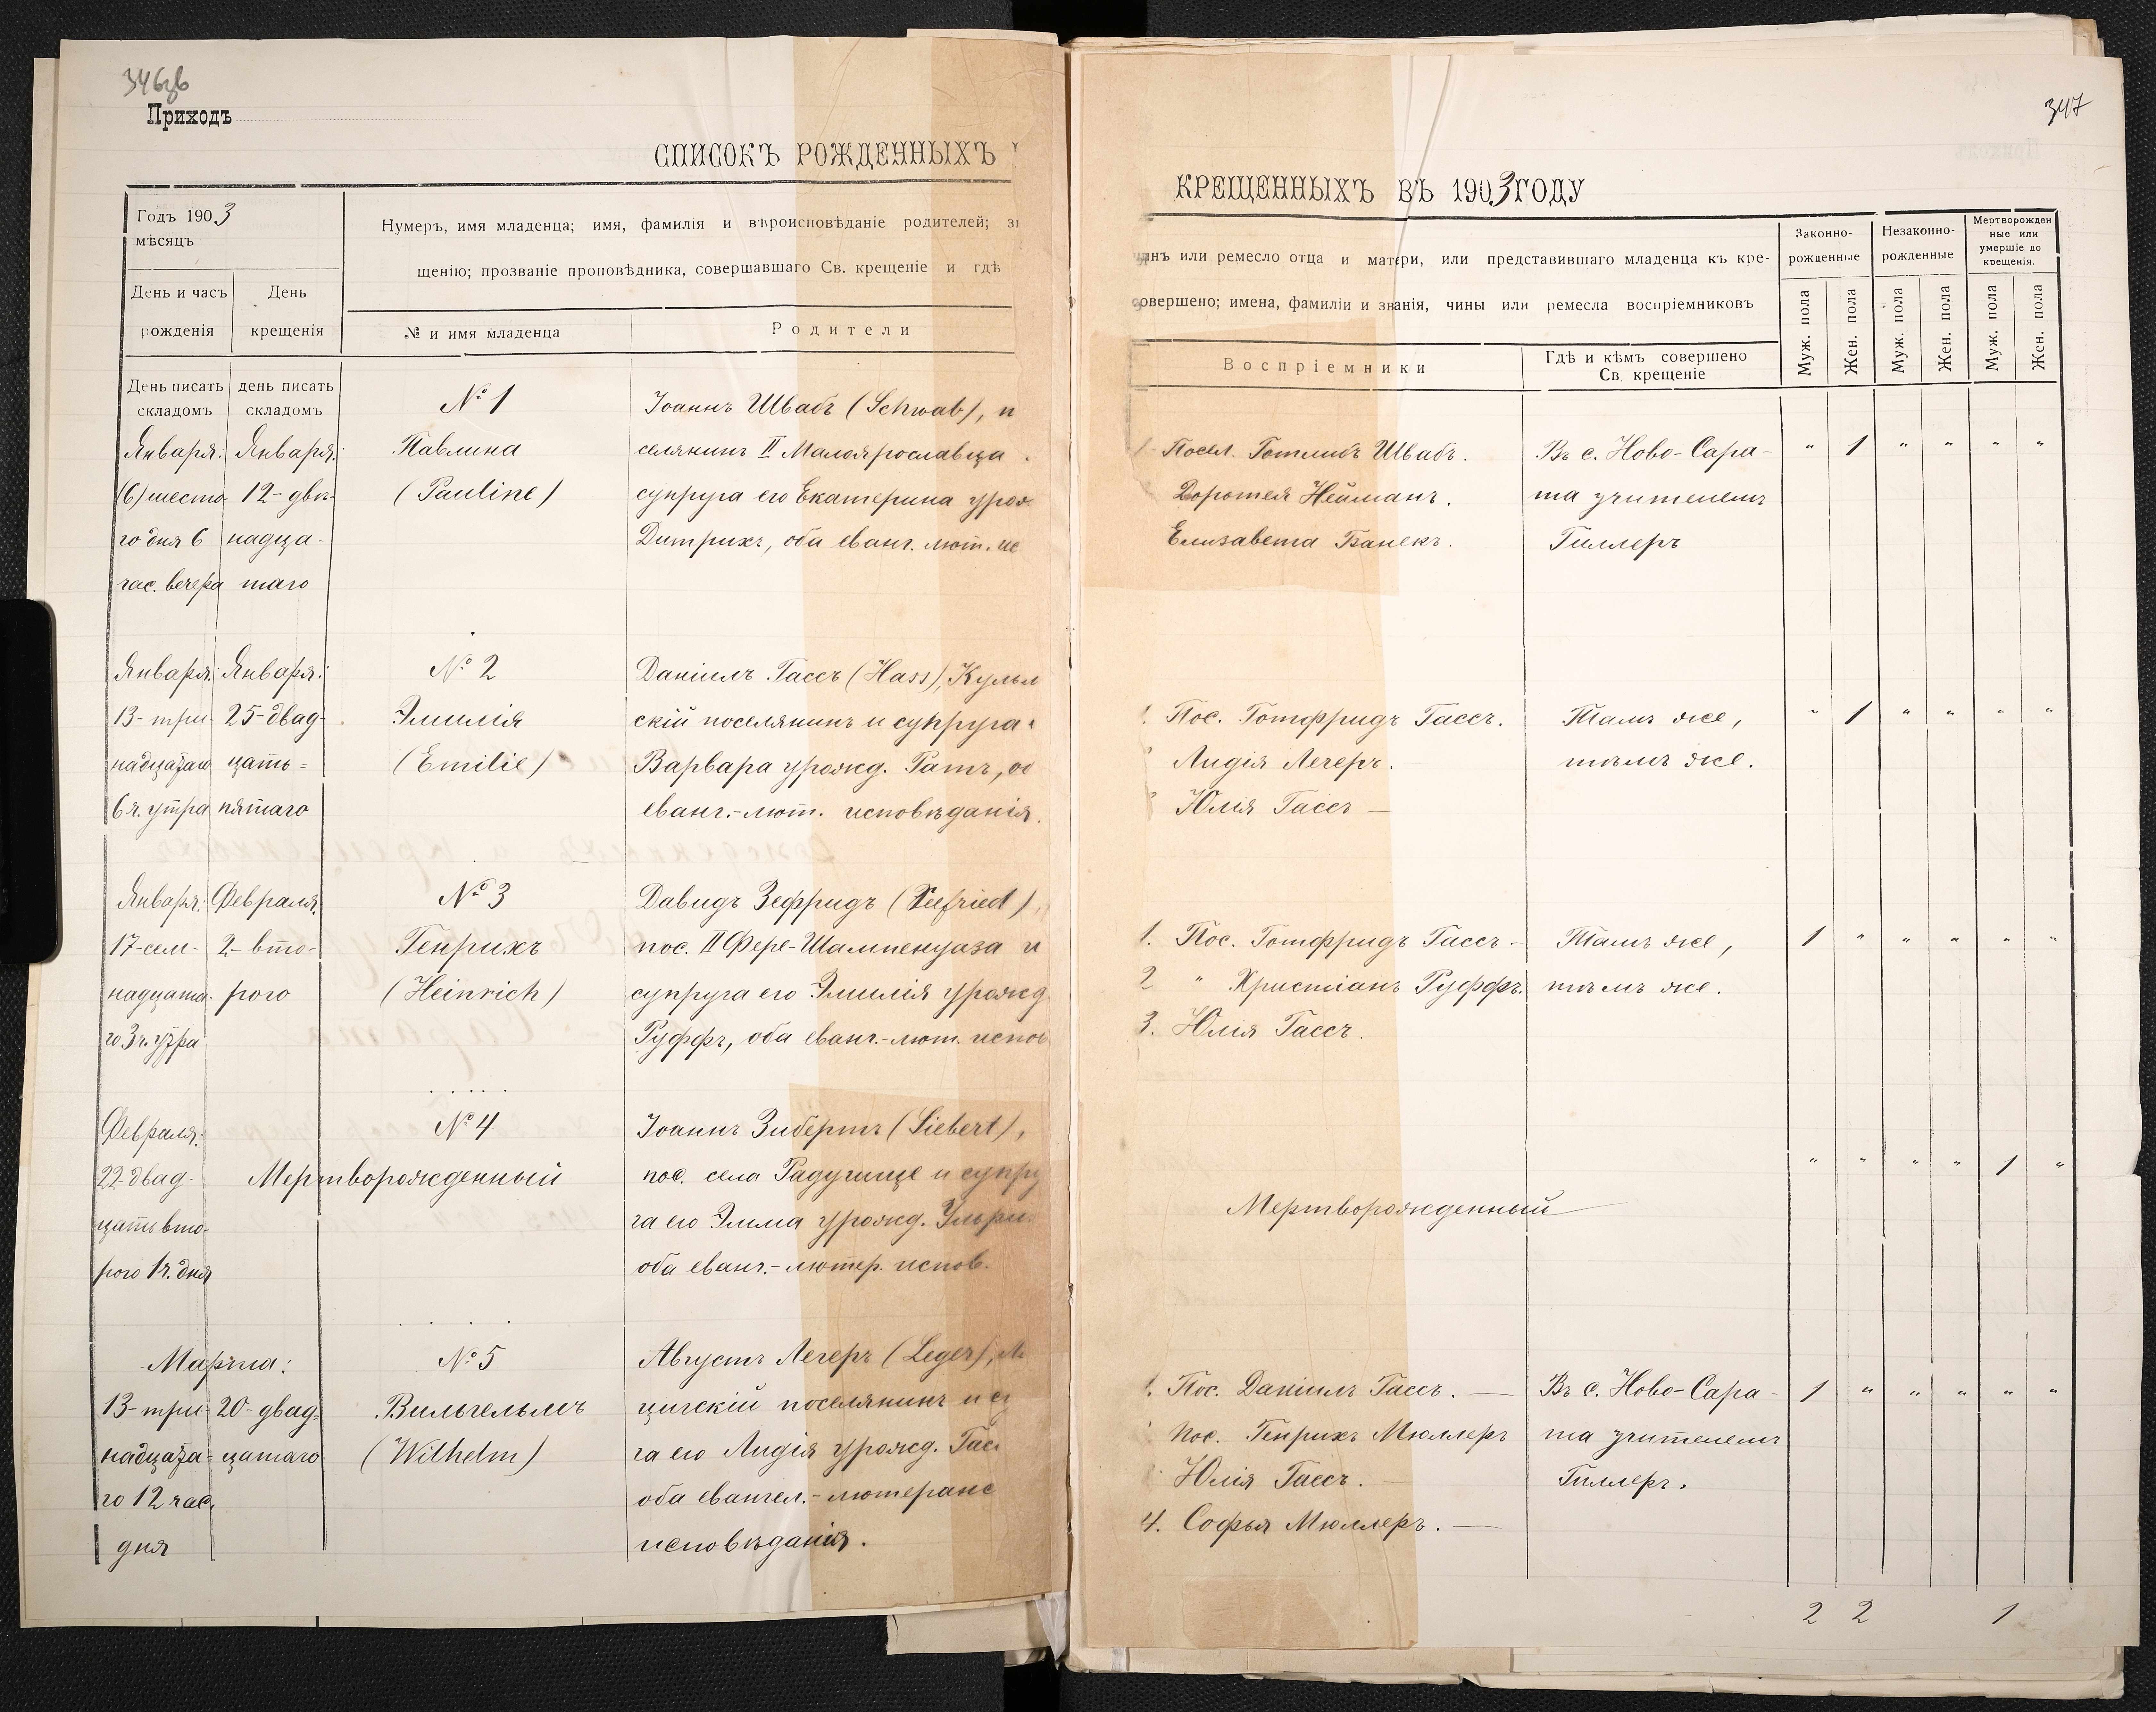 346об
Приходъ
СПИСОКЪ РОЖДЕННЫХЪ
Годъ 1903
мѣсяцъ
Нумеръ, имя младенца; имя, фамилія и вѣроисповѣданіе родителей;
щенію; прозваніе проповѣдника, совершавшаго Св. крещеніе и гдѣ
День и часъ рожденія
День крещенія
№ и имя младенца
Родители
День писать складомъ
день писать складомъ
Января:
(6) шесто-
го дня 6
час. вечера
Января:
12-двѣ-
надца-
таго
№ 1
Павлина
(Pauline)
Іоаннъ Швабъ (Schwab), п
селянинъ II Малоярославца
супруга его Екатерина урож
Дитрихъ, оба еванг. лют. ис
Января:
13-три-
надцатаго
6 ч. утра
Января:
25-двад-
цать=
пятаго
№ 2
Эмилія
(Emilie)
Даніилъ Гассъ (Hass), Кульм
скій поселянинъ и супруга
Варвара урожд. Ратъ, об
еванг.-лют. исповѣданія.
Января:
17-сем-
надцата-
го 3 ч. утра
Февраля:
2-вто-
рого
№ 3
Генрихъ
(Heinrich)
Давидъ Зефридъ (Seefried),
пос. II Фере-Шампенуаза и
супруга его Эмилія урожд.
Руффъ, оба еванг.-лют. испов
Февраля:
22-двад-
цать вто-
рого 1 ч. дня
№ 4
Мертворожденный
Іоаннъ Зибертъ (Siebert),
пос. села Радучище и супру
га его Эмма урожд. Ульри
оба еванг.-лютер. испов.
Марта:
13-три-
надцата-
го 12 час.
дня
20-двад-
цатаго
№ 5
Вильгельмъ
(Wilhelm)
Августъ Легеръ (Leger), Ле
цигскій поселянинъ и су
га его Лидія урожд. Гасс
оба евангел.-лютеранс
исповѣданія.
347
КРЕЩЕННЫХЪ ВЪ 1903 ГОДУ
или ремесло отца и матери, или представившаго младенца къ кре-
совершено; имена, фамиліи и званія, чины или ремесла воспріемниковъ
Законно-рожденные
Незаконно-рожденные
Мертворожденные или умершіе до крещенія.
Воспріемники
Гдѣ и кѣмъ совершено
Св. крещеніе
Муж. пола
Жен. пола
Муж. пола
Жен. пола
Муж. пола
Жен. пола
1 Посел. Готлибъ Швабъ.
Доротея Нейманъ.
Елизавета Банекъ.
Въ с. Ново-Сара-
та учителемъ
Гиллеръ
" 1 " " " "
1. Пос. Готфридъ Гассъ.
Лидія Легеръ.
Юлія Гассъ —
Тамъ же,
тѣмъ же.
" 1 " " " "
1. Пос. Готфридъ Гассъ —
2 " Христіанъ Руффъ.
3. Юлія Гассъ.
Тамъ же,
тѣмъ же.
1 " " " " "
Мертворожденный
" " " " 1 "
1. Пос. Даніилъ Гассъ. —
Пос. Генрихъ Мюллеръ
Юлія Гассъ. —
4. Софья Мюллеръ. —
Въ с. Ново-Сара-
та учителемъ
Гиллеръ.
1 " " " " "
2 2 1